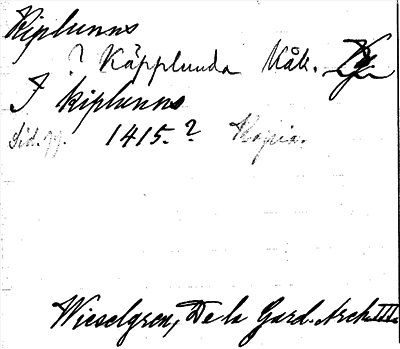 Kiplunns
? Käpplunda Kåk.
I kiplunns
Sid. 77. 1415.? Kopia.
Wieselgren, De la Gard. Arch. III